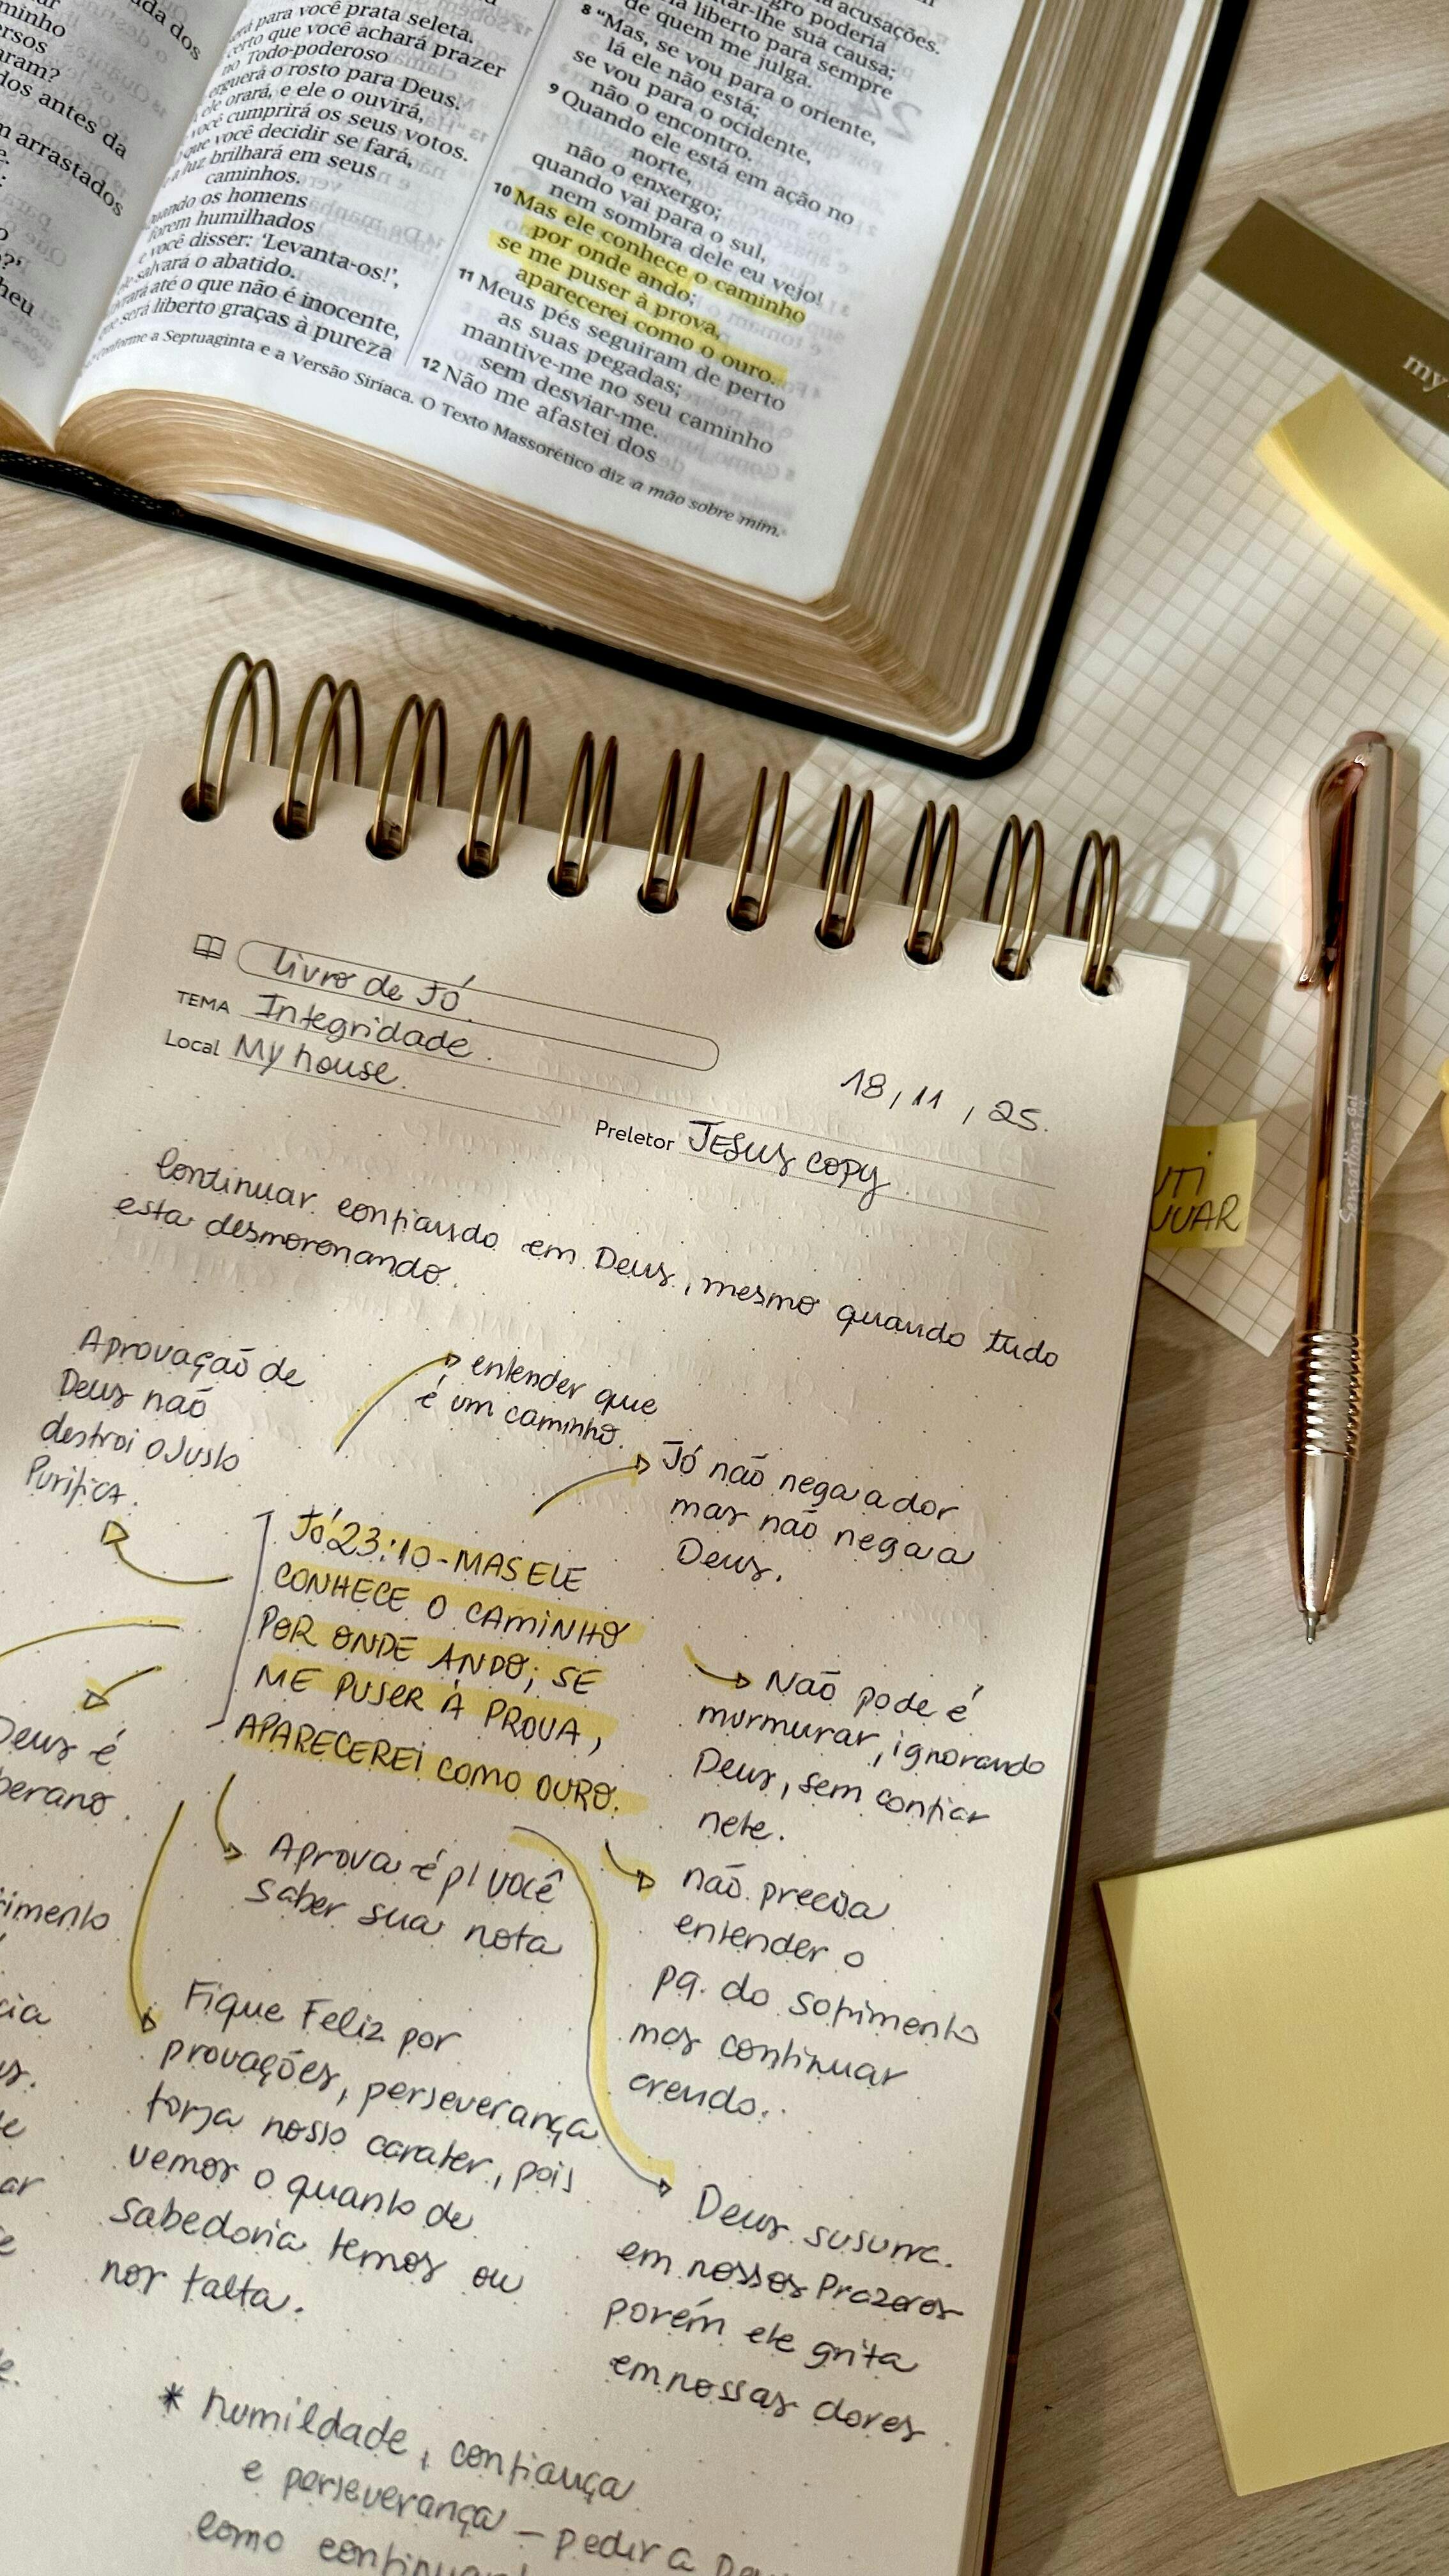 ada dos
minho
ersos
aram?
dos antes da
m arrastados
e.
heu
ará para você prata seleta.
certo que você achará prazer
no Todo-poderoso
erguerá o rosto para Deus.
ele orará, e ele o ouvirá,
você cumprirá os seus votos.
que você decidir se fará,
a luz brilhará em seus
caminhos.
uando os homens
forem humilhados
e você disser: ‘Levanta-os!’,
salvará o abatido.
vrará até o que não é inocente,
que será liberto graças à pureza
Conforme a Septuaginta e a Versão Siríaca. O Texto Massorético diz a mão sobre mim.
acusações.
gro poderia
tar-lhe sua causa;
ia liberto para sempre
de quem me julga.
8 “Mas, se vou para o oriente,
lá ele não está;
se vou para o ocidente,
não o encontro.
9 Quando ele está em ação no
norte,
não o enxergo;
quando vai para o sul,
nem sombra dele eu vejo!
10 Mas ele conhece o caminho
por onde ando;
se me puser à prova,
aparecerei como o ouro.
11 Meus pés seguiram de perto
as suas pegadas;
mantive-me no seu caminho
sem desviar-me.
12 Não me afastei dos
my
Livro de Jó.
TEMA Integridade.
Local My house.
18, 11, 25.
Preletor JESUS COPY.
Continuar confiando em Deus, mesmo quando tudo
esta desmoronando.
Aprovação de
Deus não
destroi o Justo
Purifica.
entender que
é um caminho.
Jó não nega a dor
mas não nega a
Deus.
Jó 23:10 - MAS ELE
CONHECE O CAMINHO
POR ONDE ANDO; SE
ME PUSER À PROVA,
APARECEREI COMO OURO.
Não pode é
murmurar, ignorando
Deus, sem confiar
nele.
Deus é
berano.
Aprova é p/ você
saber sua nota
não precisa
entender o
pq. do sofrimento
mas continuar
crendo.
rimento
cia
us.
te
ar
e
e.
Fique Feliz por
provações, perseverança
forja nosso carater, pois
vemos o quanto de
sabedoria temos ou
nos falta.
Deus susurra.
em nossos Prazeres
porém ele grita
em nossas dores.
* humildade, confiança
e perseverança – pedir a
como
UTI
NUAR
Sensations Gel